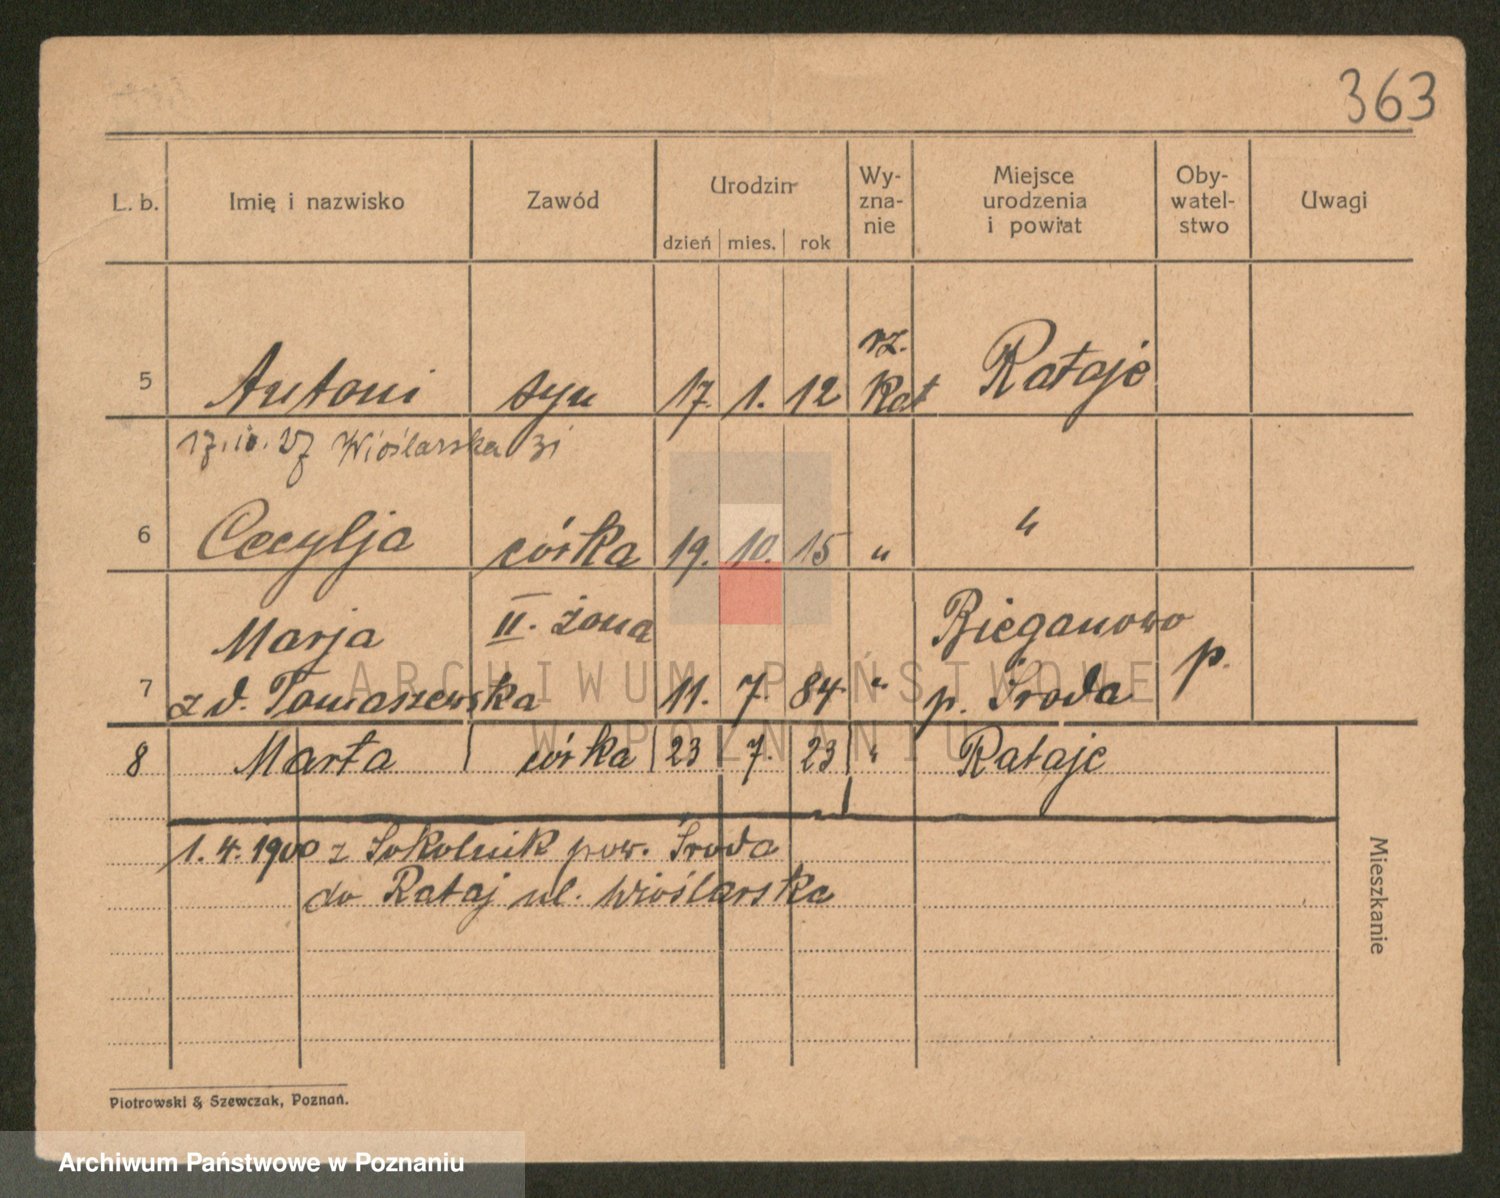 363
L. b. Imię i nazwisko Zawód Urodzin dzień mies. rok Wy-zna-nie Miejsce urodzenia i powiat Oby-watel-stwo Uwagi
5 Antoni syn 17. 1. 12 rz. Kat Rataje
17.10.27 Wioślarska 31
6 Cecylja córka 19. 10. 15 " "
Marja II. żona Bieganowo
7 z d. Tomaszewska 11. 7. 84 " p. Środa p.
8 Marta córka 23 7. 23 " Rataje
1. 4. 1900 z Sokolnik pow. Środa
do Rataj ul. Wioślarska
Mieszkanie
Piotrowski & Szewczak, Poznań.
ARCHIWUM PAŃSTWOWE
W POZNANIU
Archiwum Państwowe w Poznaniu